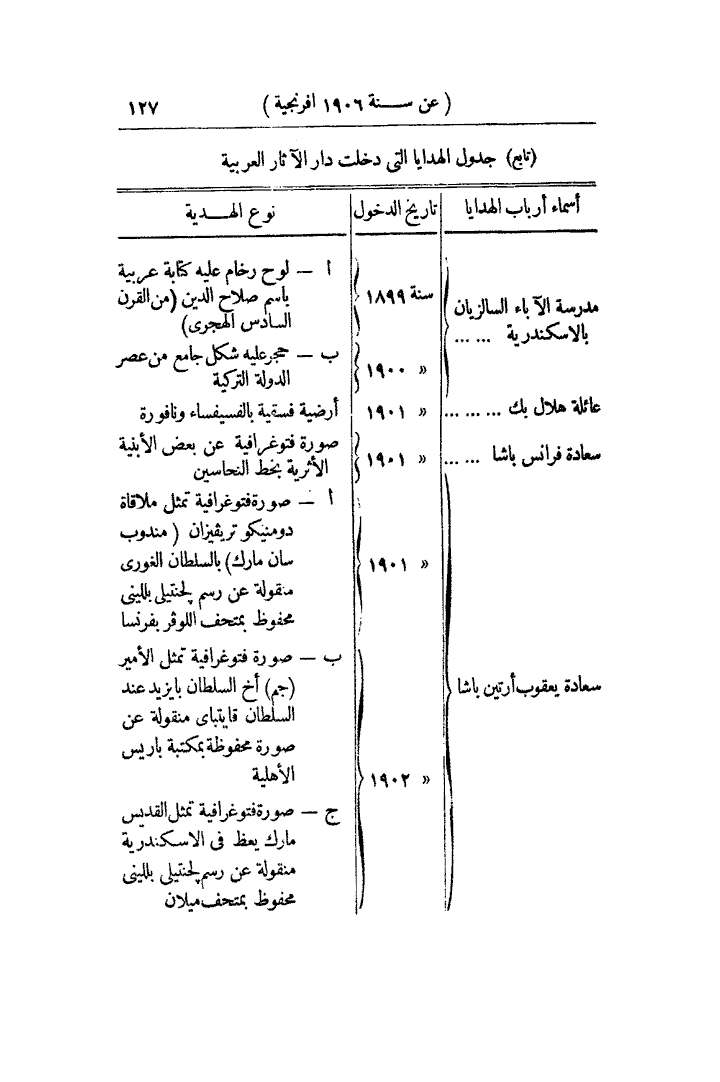 (عن سنة ١٩٠٦ افرنجية) ١٢٧
(تابع) جدول الهدايا التى دخلت دار الآثار العربية
أسماء أرباب الهدايا تاريخ الدخول نوع الهدية
مدرسة الآباء السالزيان
بالاسكندرية ... ...
سنة ١٨٩٩
أ — لوح رخام عليه كتابة عربية
باسم صلاح الدين (من القرن
السادس الهجرى)
» ١٩٠٠
ب — حجر عليه شكل جامع من عصر
الدولة التركية
عائلة هلال بك ... ... ... » ١٩٠١ أرضية فسقية بالفسيفساء ونافورة
سعادة فرانس باشا ... ... » ١٩٠١
صورة فتوغرافية عن بعض الأبنية
الأثرية بخط النحاسين
سعادة يعقوب أرتين باشا
» ١٩٠١
أ — صورة فتوغرافية تمثل ملاقاة
دومنيكو تريڤيزان (مندوب
سان مارك) بالسلطان الغورى
منقولة عن رسم لجنتيلى بللينى
محفوظ بمتحف اللوڤر بفرنسا
» ١٩٠٢
ب — صورة فتوغرافية تمثل الأمير
(جم) أخ السلطان بايزيد عند
السلطان قايتباى منقولة عن
صورة محفوظة بمكتبة باريس
الأهلية
ج — صورة فتوغرافية تمثل القديس
مارك يعظ فى الاسكندرية
منقولة عن رسم لجنتيلى بللينى
محفوظ بمتحف ميلان